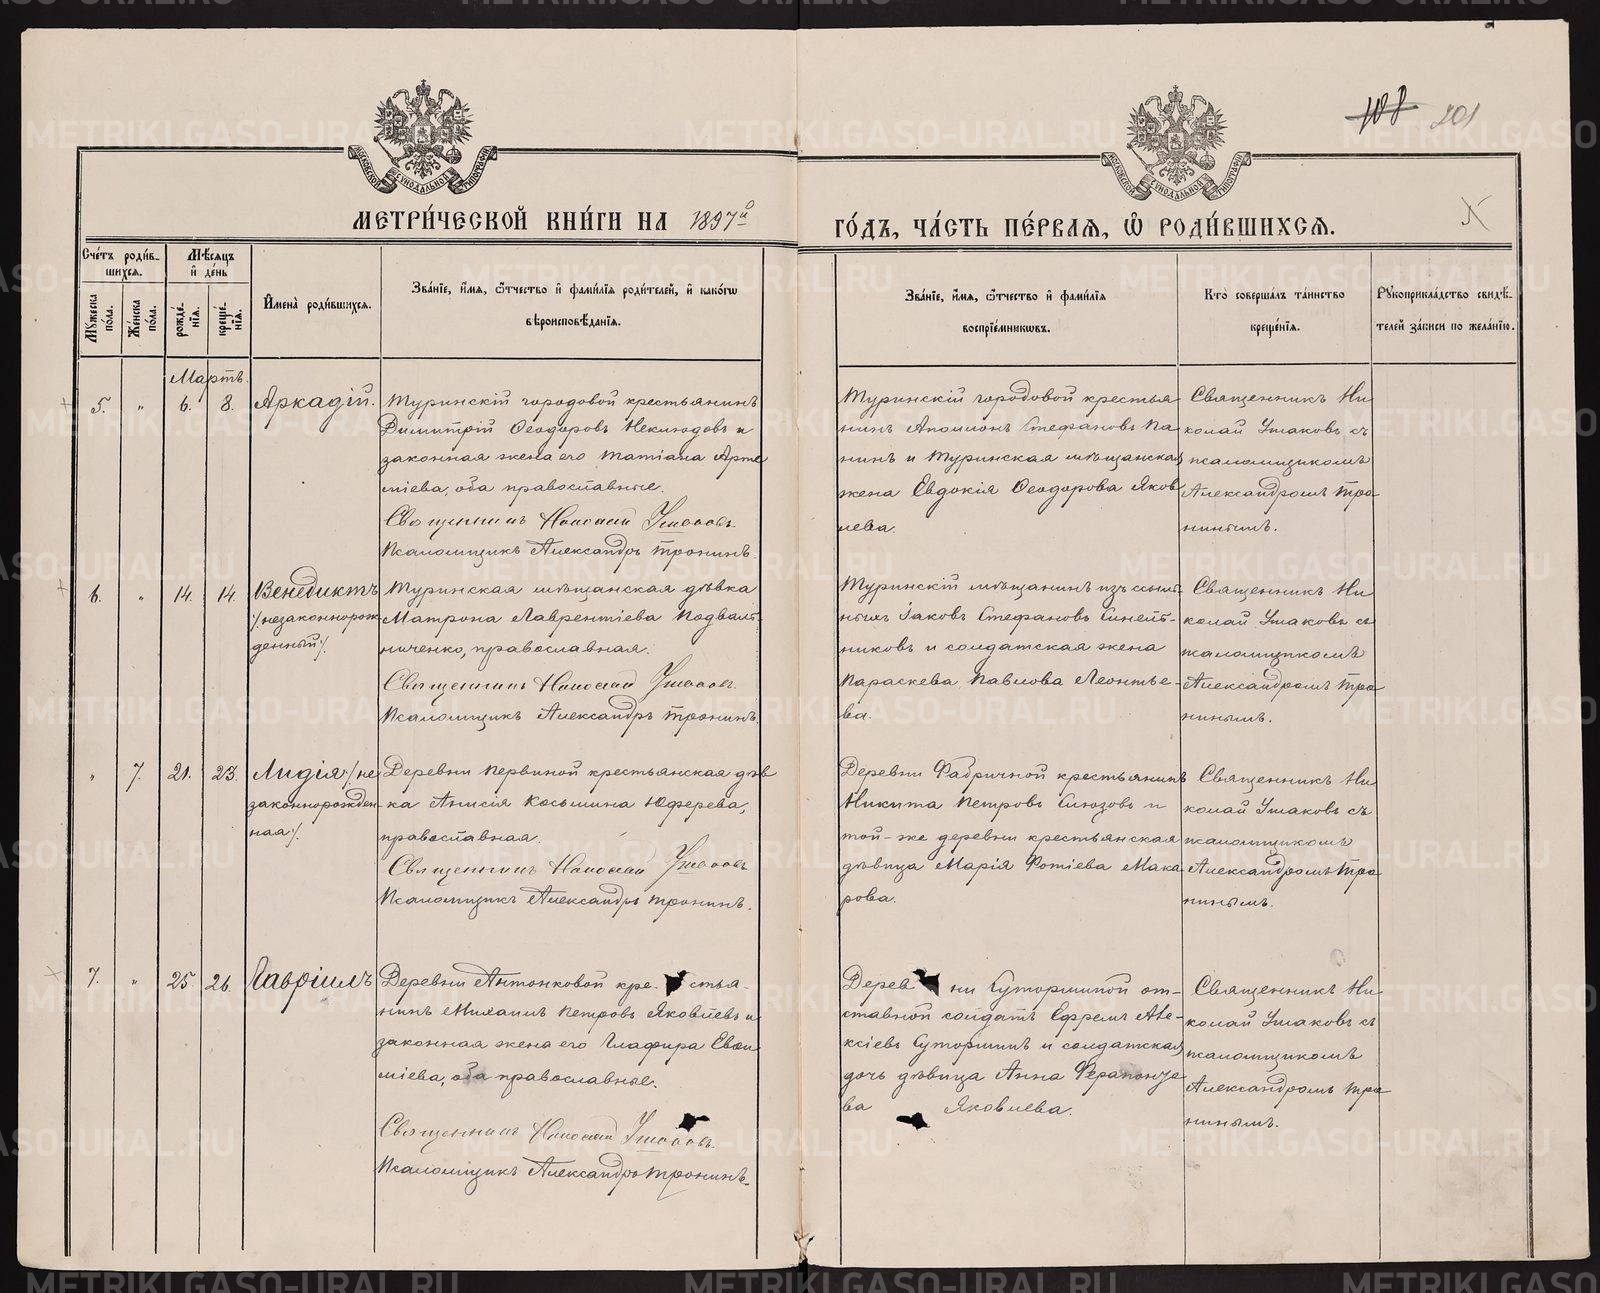 108 201
МЕТРИ́ЧЕСКОЙ КНИ́ГИ НА 1897й
ГО́ДЪ, ЧА́СТЬ ПЕ́РВАѦ, Ѡ҆ РОДИ́ВШИХСѦ.
Сче́тъ роди́в-
шихсѧ.
Мꙋжеска
пола.
Же́нска
по́ла.
Мѣ́сѧцъ
и҆ де́нь
рожде́-
нїѧ.
креще́-
нїѧ.
И҆мена̀ роди́вшихсѧ.
Зва́нїе, и҆́мѧ, ѻ҆́тчество и҆ фами́лїѧ роди́телей, и҆ како́гѡ
вѣроисповѣ́данїѧ.
Зва́нїе, и҆́мѧ, ѻ҆́тчество и҆ фами́лїѧ
воспрїе́мникѡвъ.
Кто̀ соверша́лъ та́инство
креще́нїѧ.
Рꙋкоприкла́дство свидѣ́-
телей за́писи по жела́нїю.
Мартъ.
5. " 6. 8. Аркадій.
Туринскій городовой крестьянинъ
Димитрій Ѳеодоровъ Неклюдовъ и
законная жена его Татіана Арте
міева, оба православные.
Священникъ Николай Ушаковъ.
Псаломщикъ Александръ Тронинъ.
Туринскій городовой крестья
нинъ Аполлонъ Стефановъ Па
нинъ и Туринская мѣщанская
жена Евдокія Ѳеодорова Яков
лева.
Священникъ Ни
колай Ушаковъ съ
псаломщикомъ
Александромъ Тро
нинымъ.
6. " 14. 14. Венедиктъ
/незаконнорож-
денный/.
Туринская мѣщанская дѣвка
Матрона Лаврентіева Подваль-
ниченко, православная.
Священникъ Николай Ушаковъ.
Псаломщикъ Александръ Тронинъ.
Туринскій мѣщанинъ изъ ссыль-
ныхъ Іаковъ Стефановъ Синель-
никовъ и солдатская жена
Параскева Павлова Леонтье-
ва.
Священникъ Ни
колай Ушаковъ съ
псаломщикомъ
Александромъ Тро
нинымъ.
" 7. 21. 23. Лидія /не
законнорожден-
ная/.
Деревни Первиной крестьянская дѣв
ка Анисія Косьмина Юферева,
православная.
Священникъ Николай Ушаковъ
Псаломщикъ Александръ Тронинъ.
Деревни Фабричной крестьянинъ
Никита Петровъ Слюзовъ и
той-же деревни крестьянская
дѣвица Марія Фотіева Мака
рова.
Священникъ Ни
колай Ушаковъ съ
псаломщикомъ
Александромъ Тро
нинымъ.
7. " 25. 26. Гавріилъ
Деревни Антонковой кре- стья-
нинъ Михаилъ Петровъ Яковлевъ и
законная жена его Глафира Евѳи
міева, оба православные.
Священникъ Николай Ушаковъ.
Псаломщикъ Александръ Тронинъ.
Дерев ни Суторминой от-
ставной солдатъ Ефремъ Але-
ксіевъ Сутормин и солдатская
дочь дѣвица Анна Ферапонтье
ва Яковлева.
Священникъ Ни
колай Ушаковъ съ
псаломщикомъ
Александромъ Тро
нинымъ.
METRIKI.GASO-URAL.RU